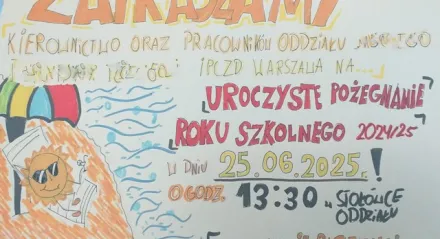 ZAPRASZAMY
KIEROWNICTWO ORAZ PRACOWNIKÓW ODDZIAŁU
IPCZD WARSZAWA NA...
„UROCZYSTE POŻEGNANIE
ROKU SZKOLNEGO 2024/25”
W DNIU 25.06.2025r!
O GODZ. 13:30 W STOŁÓWCE
ODDZIAŁU